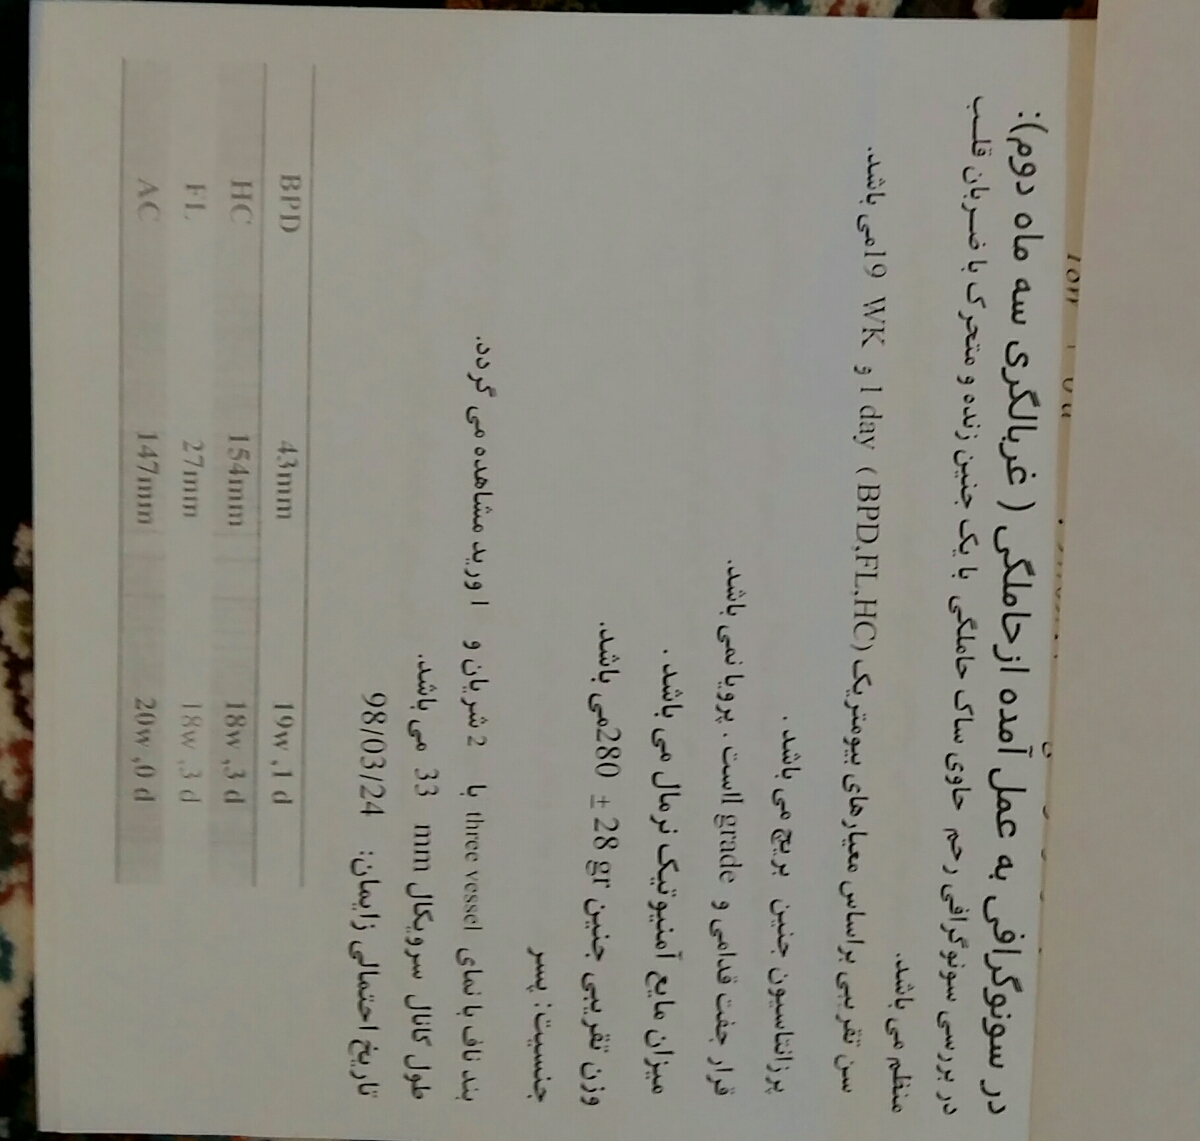 در سونوگرافی به عمل آمده از حاملگی ( غربالگری سه ماه دوم):
در بررسی سونوگرافی رحم حاوی ساک حاملگی با یک جنین زنده و متحرک با ضربان قلب
منظم می باشد.
سن تقریبی براساس معیارهای بیومتریک (BPD,FL,HC) 1 day و 19 WK می باشد.
پرزانتاسیون جنین بریچ می باشد .
قرار جفت قدامی و grade I است . پرویا نمی باشد.
میزان مایع آمنیوتیک نرمال می باشد .
وزن تقریبی جنین 280 ± 28 gr می باشد.
جنسیت: پسر
بند ناف با نمای three vessel با 2 شریان و 1 ورید مشاهده می گردد.
طول کانال سرویکال 33 mm می باشد.
تاریخ احتمالی زایمان: 98/03/24
BPD 43mm 19w ,1 d
HC 154mm 18w ,3 d
FL 27mm 18w ,3 d
AC 147mm 20w ,0 d